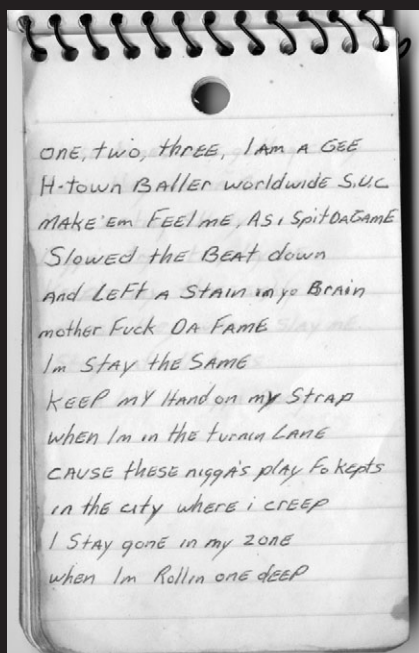 ONE, two, three, I Am A GEE
H-town Baller worldwide S.U.C.
MAKE 'Em FEEL me, As i Spit DA GAmE
Slowed the BeAt down
And LEFt A StAin in yo BrAin
mother Fuck DA FAmE
Im StAy the SAmE
KEEP mY Hand on my StrAp
when Im in the turnin LAnE
CAUSE these niggA's plAy Fo kepts
in the city where i creep
I StAy gone in my zone
when Im Rollin one deep